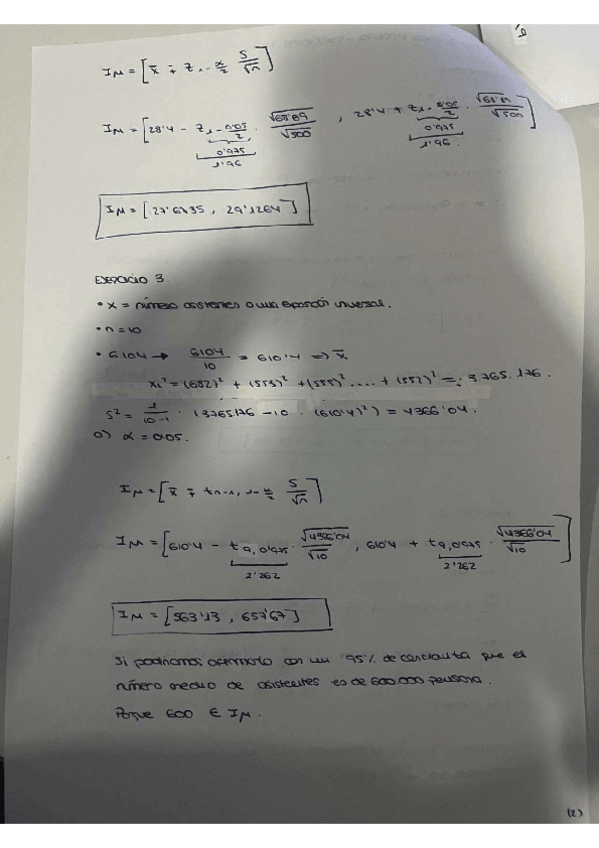 Iμ = [x̄ ∓ z₁₋α/₂ S/√n]
Iμ = [28'4 − z₁₋0'05/2 · √68'89/√500 , 28'4 + z₁₋0'05/2 · √68'89/√500]
0'975 0'975
1'96 1'96.
Iμ = [27'6735 , 29'1264]
Ejercicio 3.
• X = número asistentes a una exposición universal.
• n = 10
• 6104 → 6104/10 = 610'4 ⇒ x̄
xi² = (652)² + (553)² + (555)² .... + (552)² = 3.765.176.
S² = 1/10-1 · (3765176 − 10 · (610'4)²) = 4366'04.
a) α = 0'05.
Iμ = [x̄ ∓ tₙ₋₁, ₁₋α/₂ S/√n]
Iμ = [610'4 − t₉, ₀'₉₇₅ · √4366'04/√10 , 610'4 + t₉, ₀'₉₇₅ · √4366'04/√10]
2'262 2'262
Iμ = [563'13 , 657'67]
Si podríamos afirmarlo con un 95% de confianza que el
número medio de asistentes es de 600.000 persona.
Porque 600 ∈ Iμ.
(2)